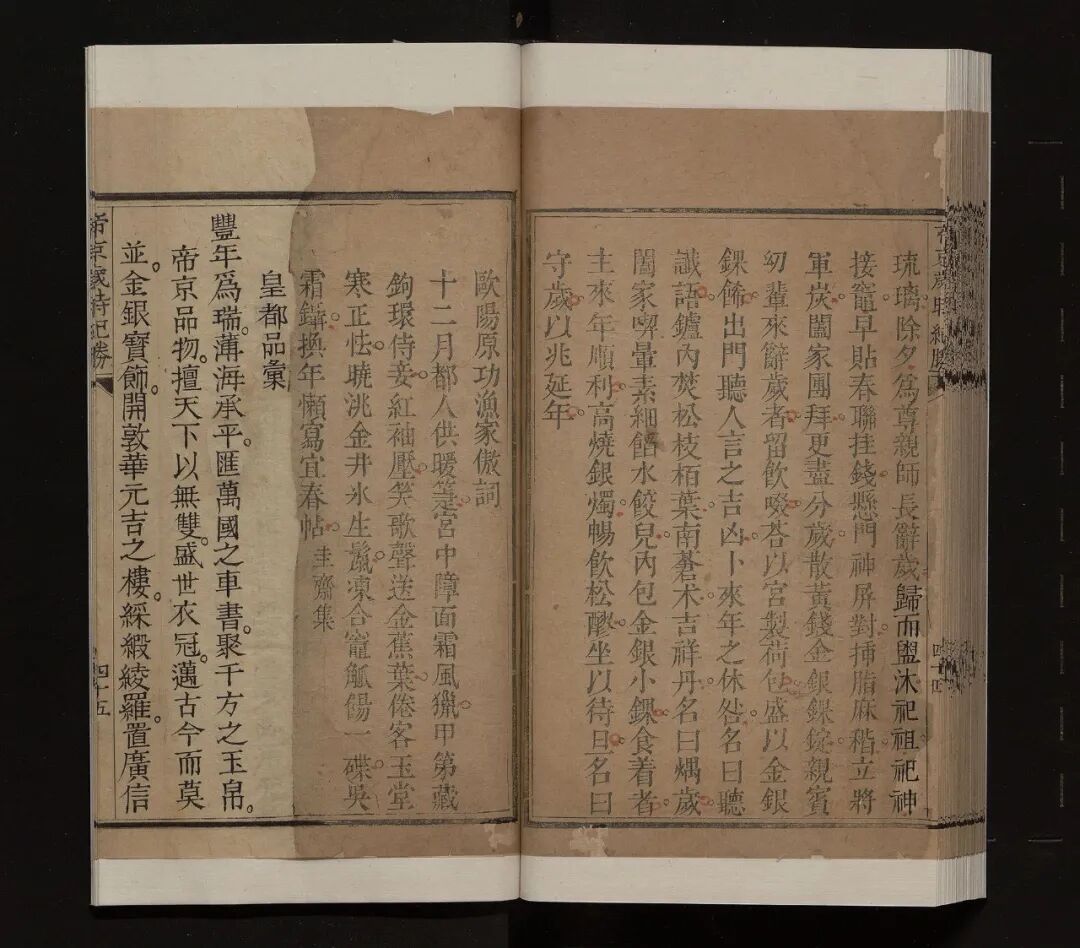 帝京歲時紀勝
四十四
琉璃除夕爲尊親師長辭歲歸而盥沐祀祖祀神
接竈早貼春聯挂錢懸門神屏對插脂麻稭立將
軍炭闔家團拜更盡分歲散黃錢金銀錁錠親賓
幼輩來辭歲者留飲啜荅以宮製荷包盛以金銀
錁飾出門聽人言之吉凶卜來年之休咎名曰聽
讖語鑪內焚松枝栢葉南蒼术吉祥丹名曰煱歲
闔家喫葷素細餡水餃兒內包金銀小錁食着者
主來年順利高燒銀燭暢飲松醪坐以待旦名曰
守歲以兆延年
歐陽原功漁家傲詞
十二月都人供暖箑宮中障面霜風獵甲第藏
鉤環侍妾紅袖壓笑歌聲送金蕉葉倦客玉堂
寒正怯曉洮金井氷生鬣凍合竈觚餳一碟吳
霜鑷換年懶寫宜春帖 圭齋集
皇都品彙
豐年爲瑞薄海承平匯萬國之車書聚千方之玉帛
帝京品物擅天下以無雙盛世衣冠邁古今而莫
並金銀寶飾開敦華元吉之樓綵緞綾羅置廣信
帝京歲時紀勝
四十五